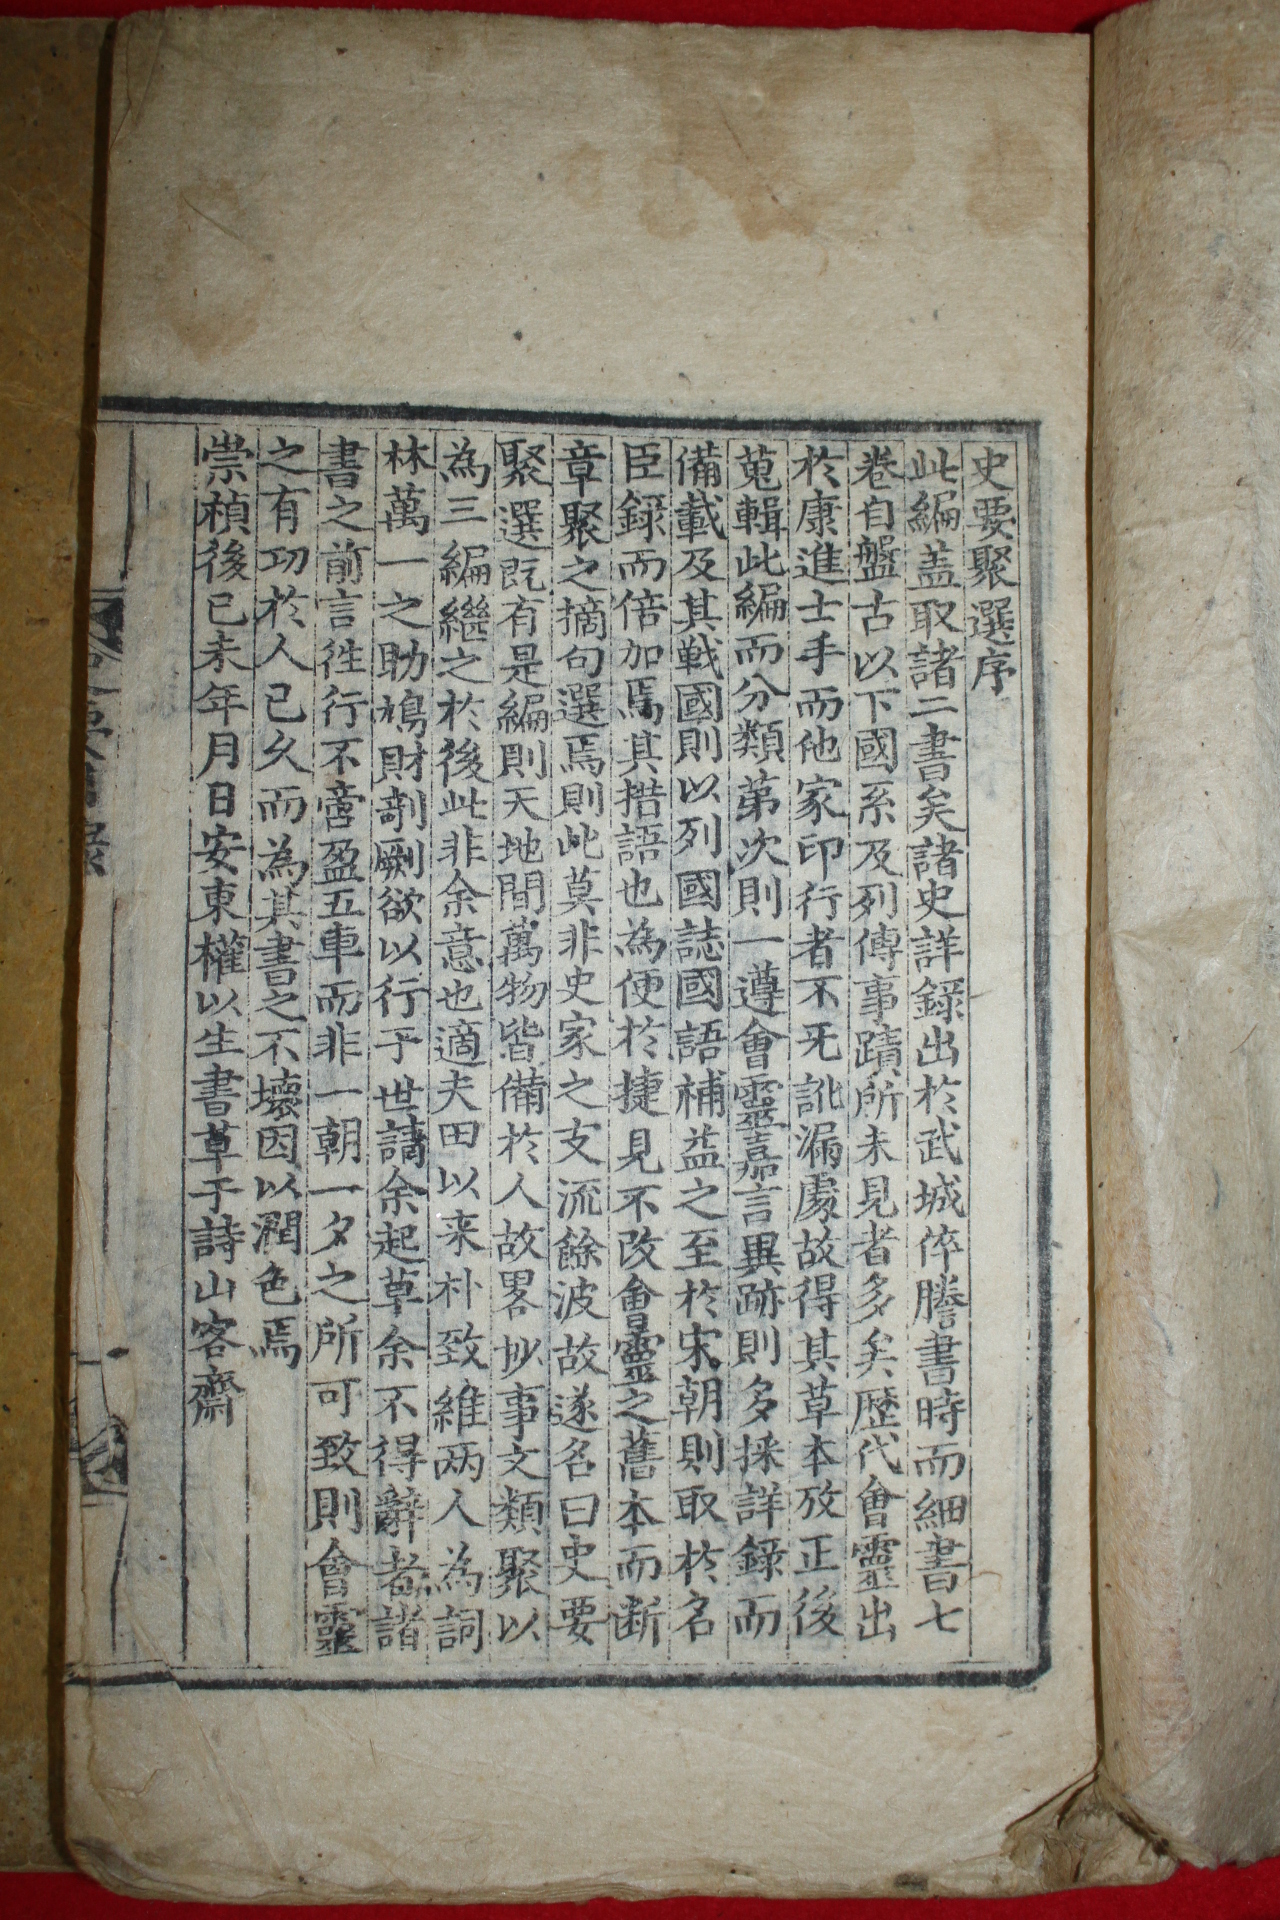 史要聚選序
此編盖取諸二書矣諸史詳錄出於武城倅謄書時而細書七
卷自盤古以下國系及列傳事蹟所未見者多矣歷代會靈出
於康進士手而他家印行者不无訛漏處故得其草本攷正後
蒐輯此編而分類苐次則一遵會靈嘉言異跡則多採詳錄而
備載及其戰國則以列國誌國語補益之至於宋朝則取於名
臣錄而倍加焉其措語也為便於捷見不改會靈之舊本而断
章聚之摘句選焉則此莫非史家之支流餘波故遂名曰史要
聚選既有是編則天地間萬物皆備於人故畧抄事文類聚以
為三編繼之於後此非余意也適夫田以来朴致維两人為詞
林萬一之助鳩財剞劂欲以行于世請余起草余不得辭者諸
書之前言徃行不啻盈五車而非一朝一夕之所可致則會靈
之有功於人已久而為其書之不壞因以潤色焉
崇禎後己未年月日安東權以生書草于詩山客齋